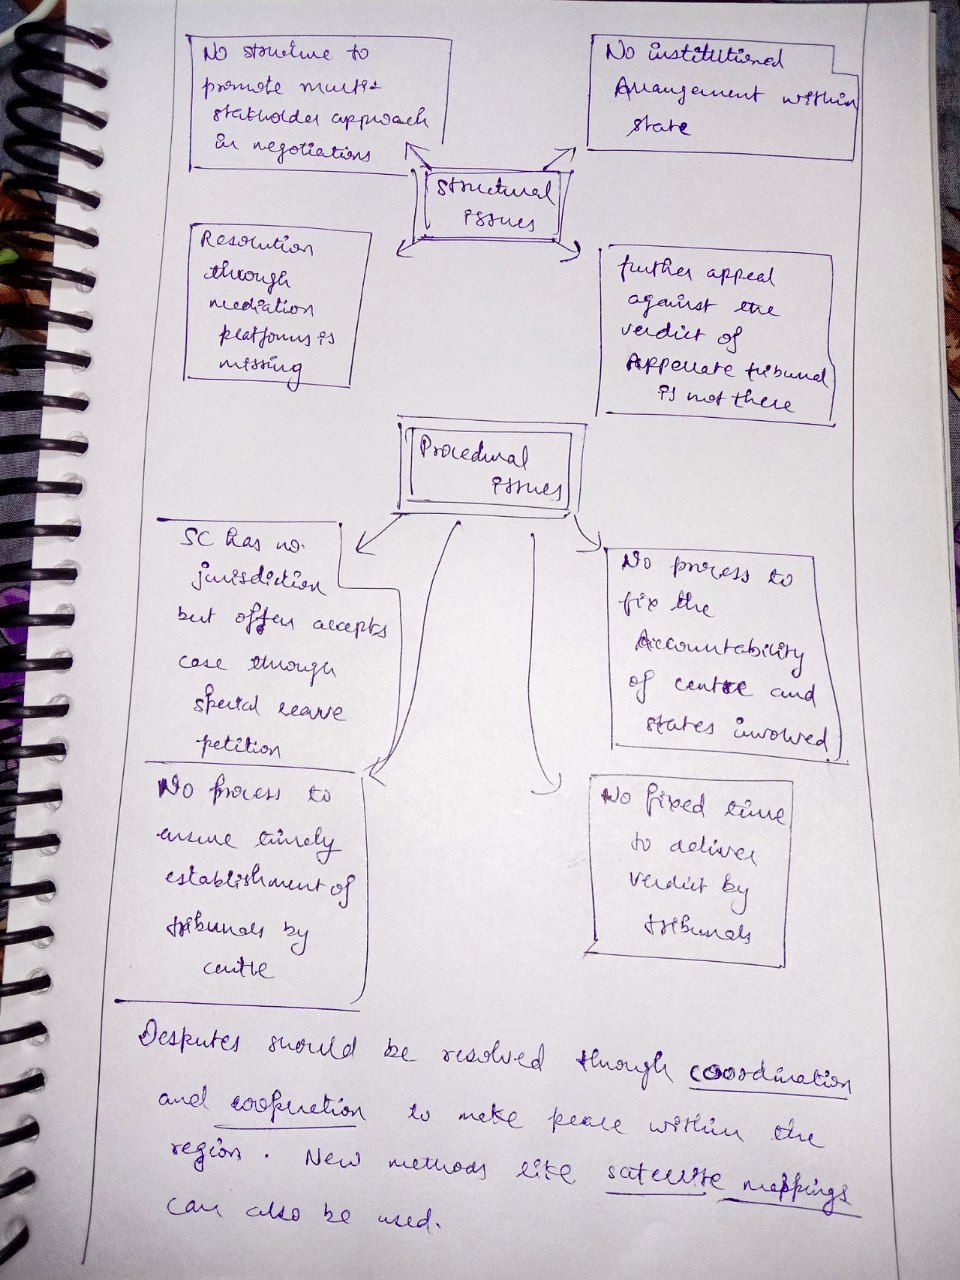 No structure to
promote multi
stakholder approach
in negotiations
No institutional
Arrangement within
state
Structural
issues
Resolution
through
mediation
platforms is
missing
further appeal
against the
verdict of
Appellate tribunal
is not there
Procedural
issues
SC has no
jurisdiction
but often accepts
case through
special leave
petition
No process to
fix the
Accountability
of centre and
states involved
No process to
ensure timely
establishment of
tribunals by
centre
No fixed time
to deliver
verdict by
tribunals
Disputes should be resolved through coordination
and cooperation to make peace within the
region. New methods like satellite mappings
can also be used.